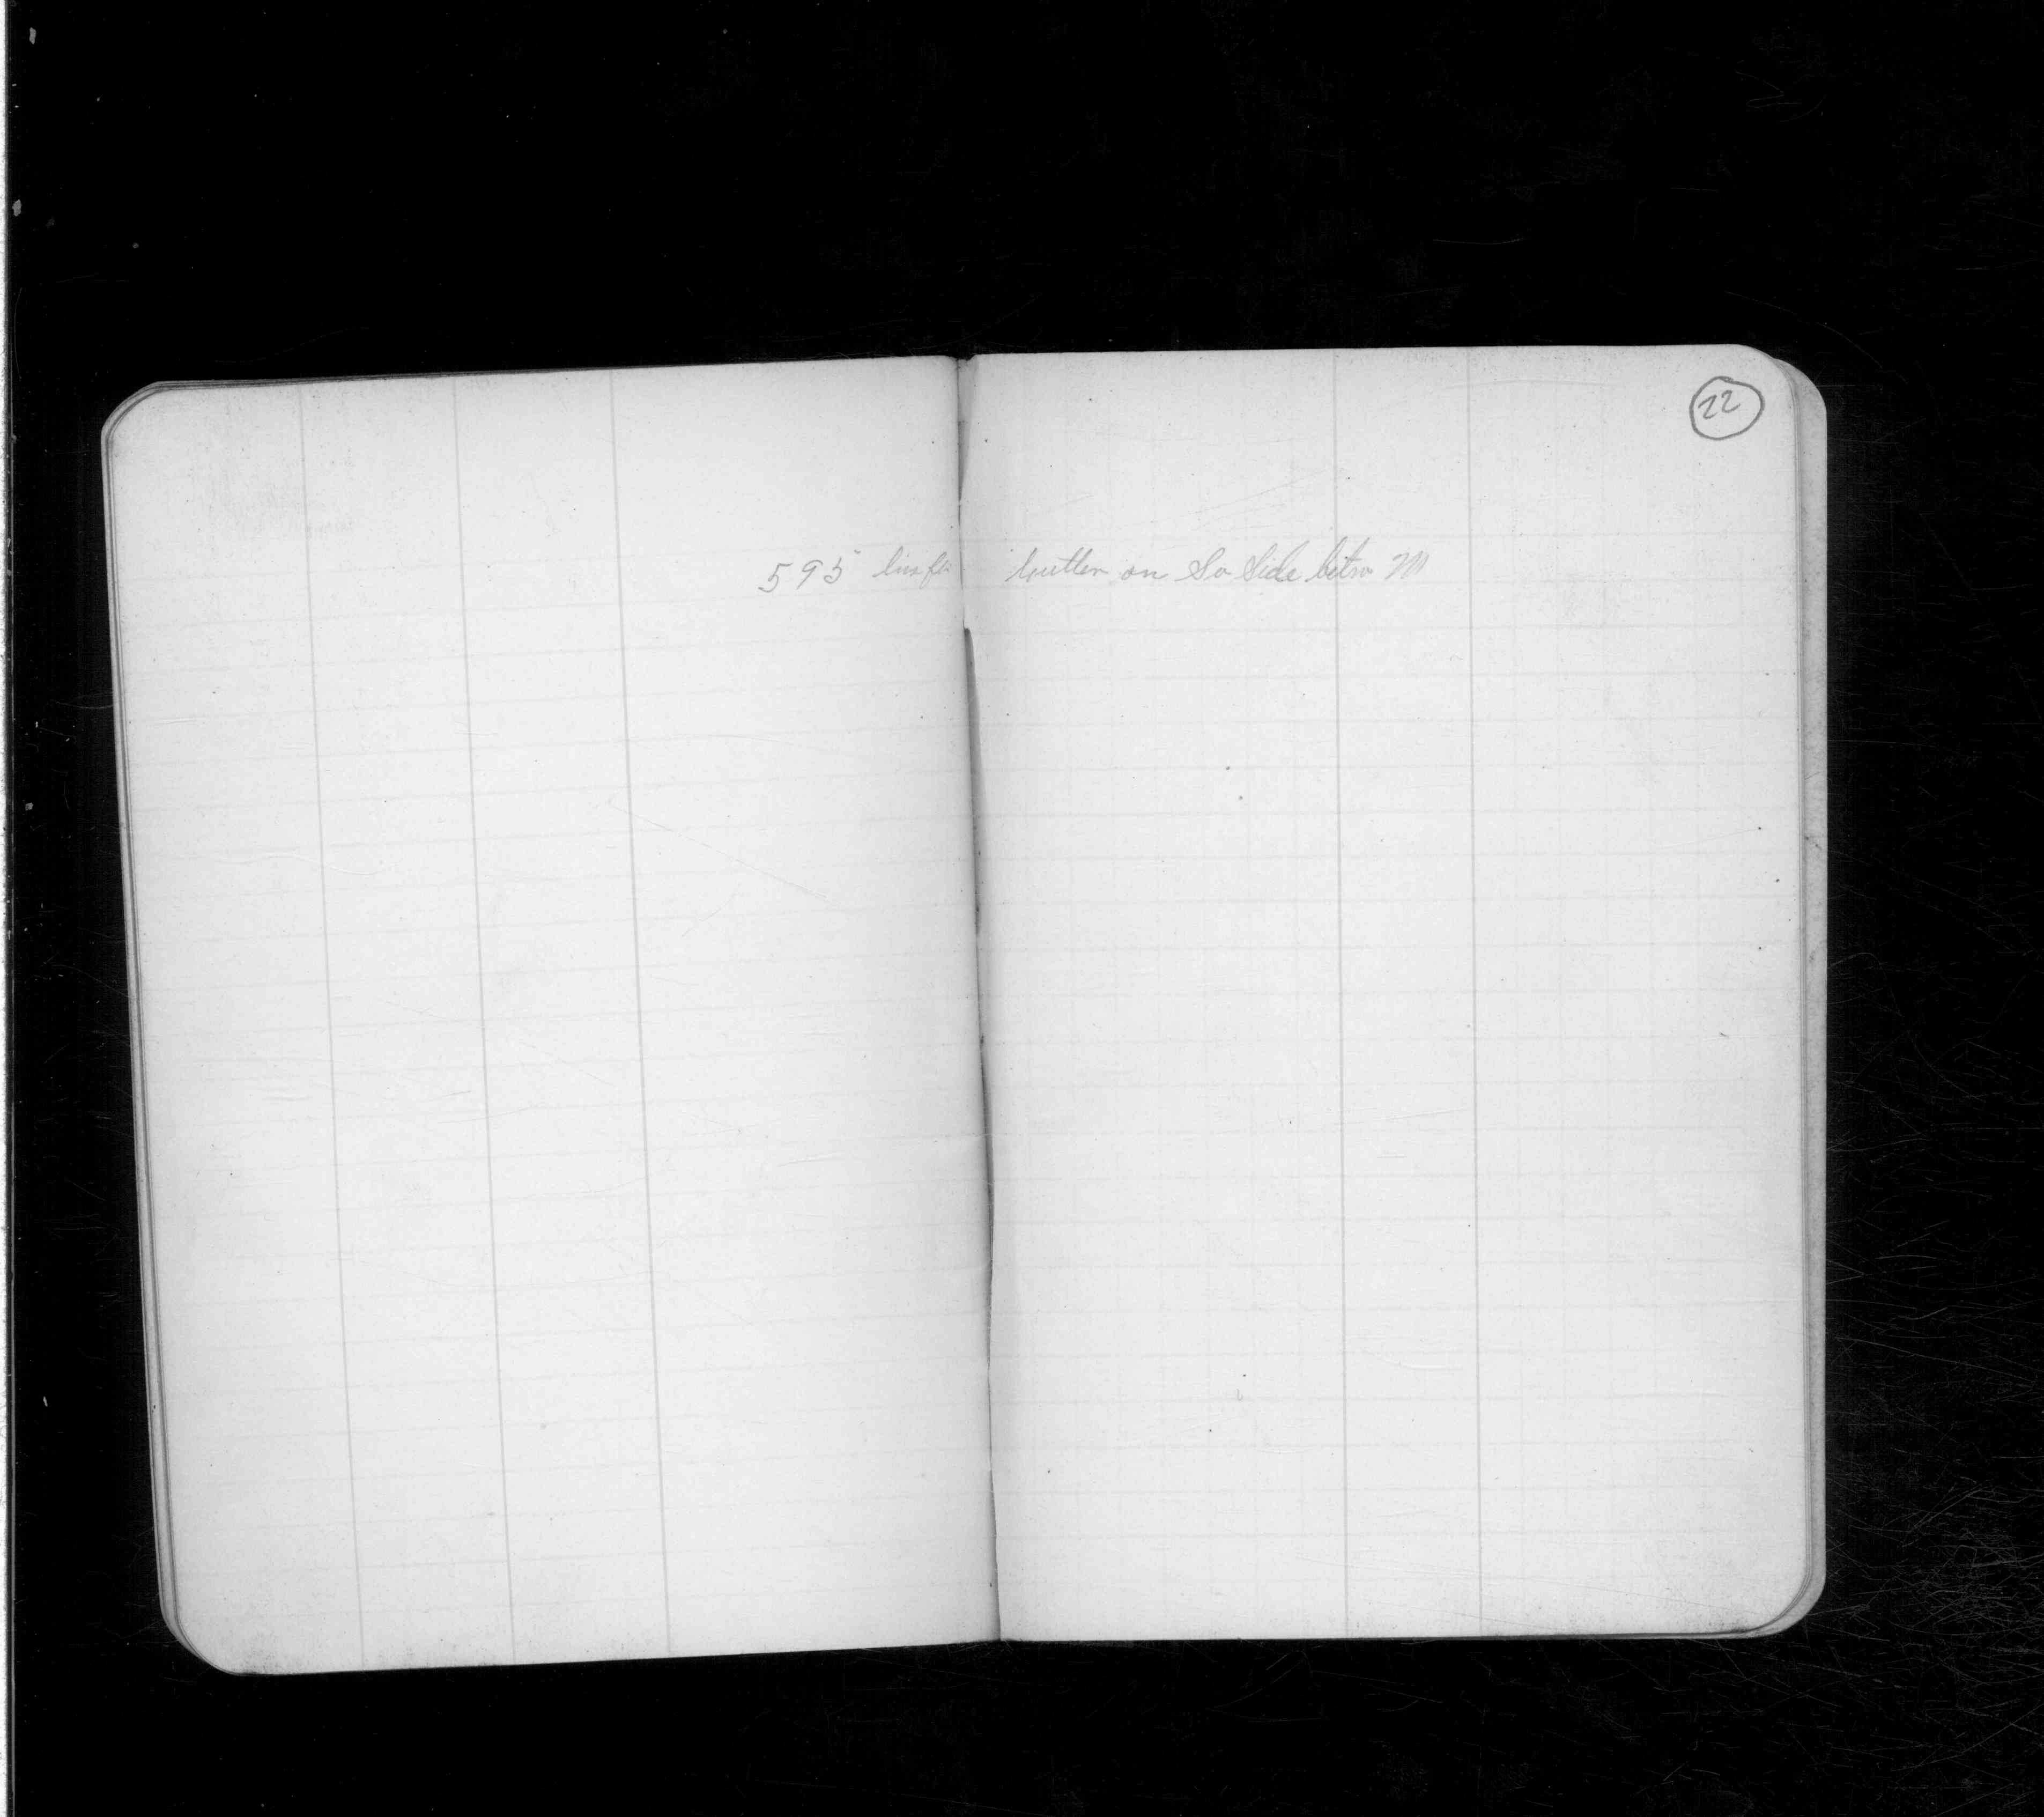 22
595 lin ft Gutter on So Side betw M